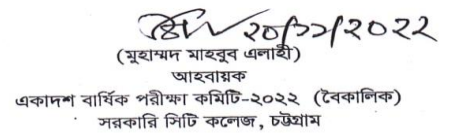 ২০/১১/২০২২
(মুহাম্মদ মাহবুব এলাহী)
আহবায়ক
একাদশ বার্ষিক পরীক্ষা কমিটি-২০২২ (বৈকালিক)
সরকারি সিটি কলেজ, চট্টগ্রাম